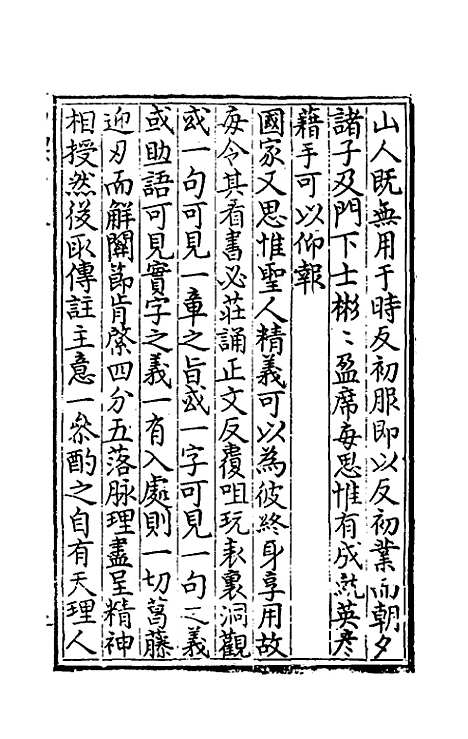 山人既無用于時反初服即以反初業而朝夕
諸子及門下士彬〻盈席每思惟有成就英彥
藉手可以仰報
國家又思惟聖人精義可以為彼終身享用故
每令其看書必莊誦正文反覆咀玩表裏洞觀
或一句可見一章之旨或一字可見一句之義
或助語可見實字之義一有入處則一切葛藤
迎刃而解關節肯綮四分五落脉理盡呈精神
相授然後取傳註主意一叅酌之自有天理人